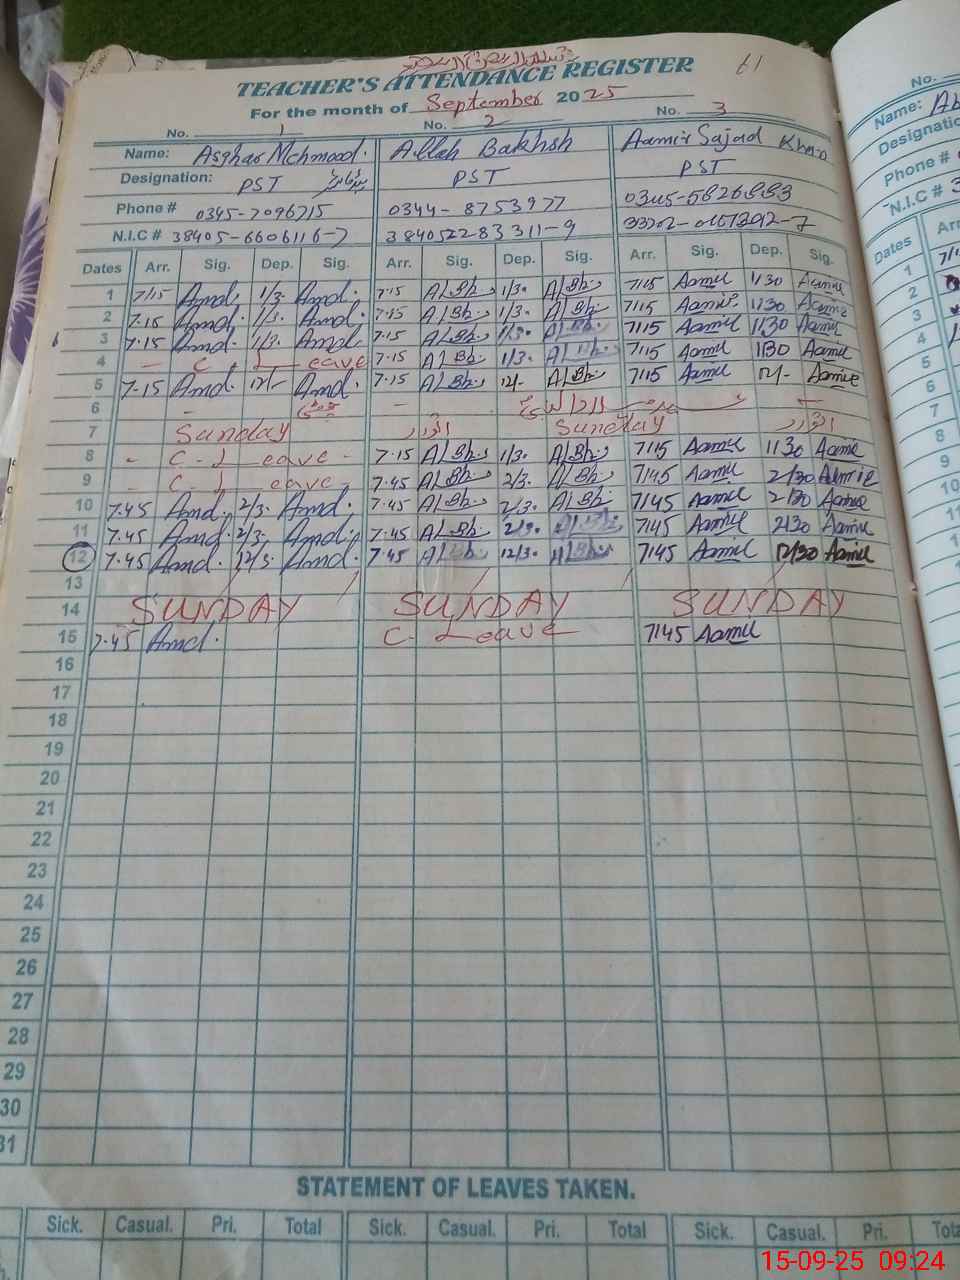 TEACHER'S ATTENDANCE REGISTER 61
For the month of September 2025
No. 1 No. 2 No. 3
Name: Asghar Mehmood. Allah Bakhsh Aamir Sajad Khan
Designation: PST PST PST
Phone # 0345-7096715 0344-8753977
N.I.C # 38405-6606116-7 384052283311-9
Dates Arr. Sig. Dep. Sig. Arr. Sig. Dep. Sig. Arr. Sig. Dep. Sig.
1 7/15 Amd. 1/3. Amd. 7.15 A/Bh. 1/3. A/Bh. 7/15 Aamir 1/30 Aamir
2 7.15 Amd. 1/3. Amd. 7.15 A/Bh. 1/3. A/Bh. 7/15 Aamir 1/30 Aamir
3 7.15 Amd. 1/3. Amd. 7.15 A/Bh. 1/3. A/Bh. 7/15 Aamir 1/30 Aamir
4 - C. Leave 7.15 A/Bh. 1/3. A/Bh. 7/15 Aamir 1/30 Aamir
5 7.15 Amd. 12/- Amd. 7.15 A/Bh. 12/- A/Bh. 7/15 Aamir 12/- Aamir
6
7 Sunday اتوار Sunday اتوار
8 - C. Leave - 7.15 A/Bh. 1/3. A/Bh. 7/15 Aamir 1/30 Aamir
9 - C. Leave - 7.45 A/Bh. 2/3. A/Bh. 7/45 Aamir 2/30 Aamir
10 7.45 Amd. 2/3. Amd. 7.45 A/Bh. 2/3. A/Bh. 7/45 Aamir 2/30 Aamir
11 7.45 Amd. 2/3. Amd. 7.45 A/Bh. 2/3. A/Bh. 7/45 Aamir 2/30 Aamir
12 7.45 Amd. 12/3. Amd. 7.45 A/Bh. 12/3. A/Bh. 7/45 Aamir 12/30 Aamir
13
14 SUNDAY SUNDAY SUNDAY
15 7.45 Amd. C. Leave 7/45 Aamir
16
17
18
19
20
21
22
23
24
25
26
27
28
29
30
31
STATEMENT OF LEAVES TAKEN.
Sick. Casual. Pri. Total Sick. Casual. Pri. Total Sick. Casual. Pri.
No.
Name:
Phone #
N.I.C # 3
Dates
1
2
3
4
5
6
7
8
9
10
11
15-09-25 09:24